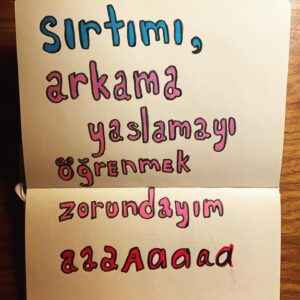 sırtımı,
arkama
yaslamayı
öğrenmek
zorundayım
aaaAaaaa